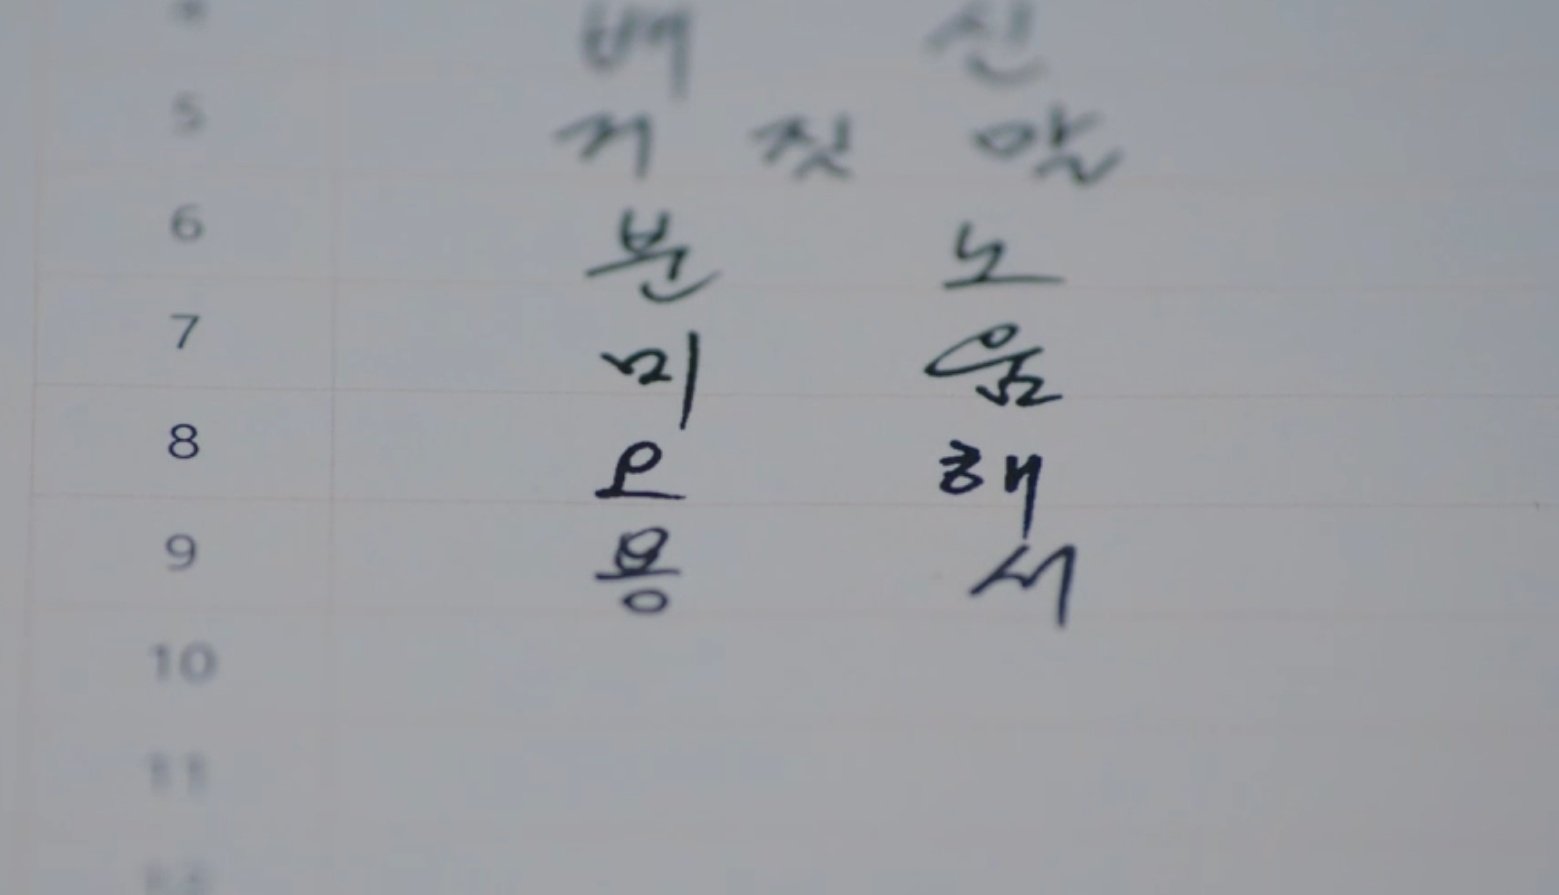 4 배 신
5 거 짓 말
6 분 노
7 미 움
8 오 해
9 용 서
10
11
12